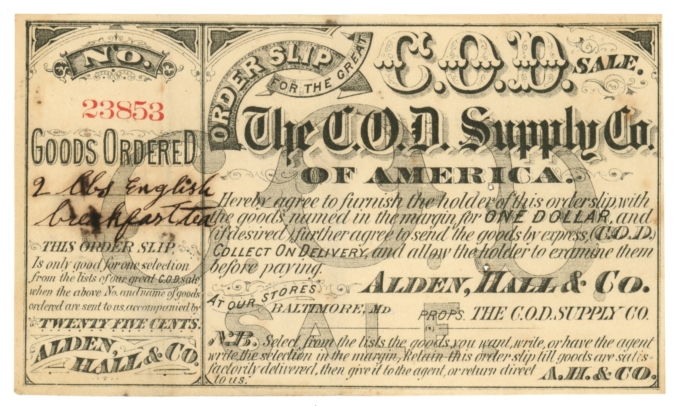 No.
23853
GOODS ORDERED
2 lbs English
breakfast tea
THIS ORDER SLIP
Is only good for one selection
from the lists of our great C.O.D. sale
when the above No. and name of goods
ordered are sent to us, accompanied by
TWENTY FIVE CENTS.
ALDEN,
HALL & CO
ORDER SLIP
FOR THE GREAT
C.O.D. SALE.
The C.O.D. Supply Co.
OF AMERICA.
Hereby agree to furnish the holder of this order slip with
the goods named in the margin, for ONE DOLLAR, and
(if desired) further agree to send the goods by express, (C.O.D.)
COLLECT ON DELIVERY, and allow the holder to examine them
before paying.
ALDEN, HALL & CO.
AT OUR STORES
BALTIMORE, MD
PROPS. THE C.O.D. SUPPLY CO.
N.B. Select from the lists the goods you want, write, or have the agent
write the selection in the margin, Retain this order slip till goods are satis-
factorily delivered, then give it to the agent, or return direct
to us.
A.H. & CO.
C.O.D.
SALE